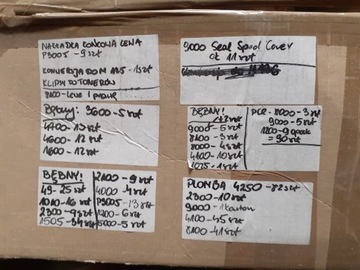 NAKŁADKA KOŃCOWA LEWA
P3005 - 9szt
KONWERSJA DO M 125 - 1szt
KLIPY DO TONERÓW
8100 - LEWE i prawe
9000 Seal Spool Cover
ok 11 szt
Bębny: 3600 - 5 szt
4700 - 13 szt
4600 - 12 szt
1600 - 12 szt
BĘBNY!
9000 - 5 szt
8100 - 3 szt
8000 - 4 szt
4100 - 10 szt
1025 - 1 szt
PCR - 8000 - 3 szt
9000 - 5 szt
1200 - 9 opak
= 90 szt
BĘBNY!
49 - 25 szt
1010 - 16 szt
2300 - 9 szt
1505 - 34 szt
2100 - 9 szt
4000 - 4 szt
P3005 - 13 szt
1200 - 6 szt
5000 - 5 szt
PLOMBA 4250 - 82 szt
2300 - 10 szt
9000 - 1 karton
4100 - 45 szt
8100 - 41 szt